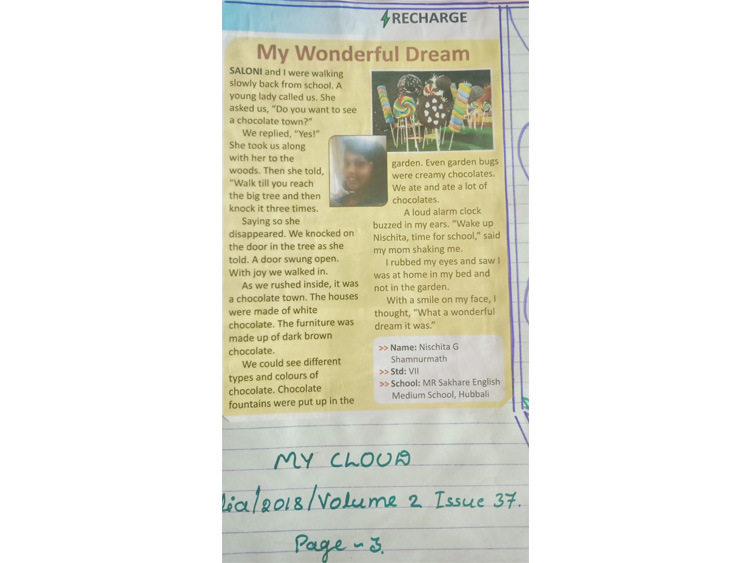 RECHARGE
My Wonderful Dream
SALONI and I were walking
slowly back from school. A
young lady called us. She
asked us, "Do you want to see
a chocolate town?"
We replied, "Yes!"
She took us along
with her to the
woods. Then she told,
"Walk till you reach
the big tree and then
knock it three times.
Saying so she
disappeared. We knocked on
the door in the tree as she
told. A door swung open.
With joy we walked in.
As we rushed inside, it was
a chocolate town. The houses
were made of white
chocolate. The furniture was
made up of dark brown
chocolate.
We could see different
types and colours of
chocolate. Chocolate
fountains were put up in the
garden. Even garden bugs
were creamy chocolates.
We ate and ate a lot of
chocolates.
A loud alarm clock
buzzed in my ears. "Wake up
Nischita, time for school," said
my mom shaking me.
I rubbed my eyes and saw I
was at home in my bed and
not in the garden.
With a smile on my face, I
thought, "What a wonderful
dream it was."
>> Name: Nischita G
Shamnurmath
>> Std: VII
>> School: MR Sakhare English
Medium School, Hubbali
MY CLOUD
/2018/Volume 2 Issue 37.
Page - 3.